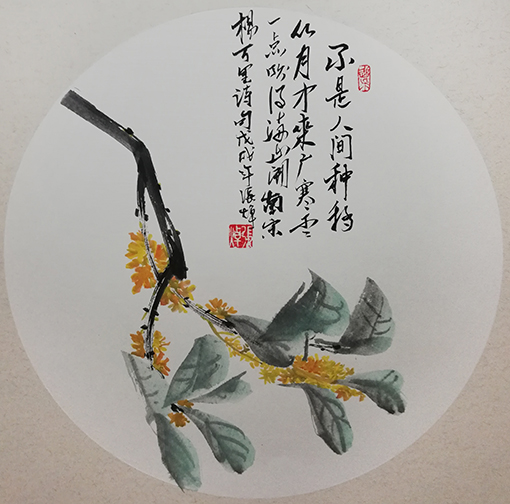 不是人间种移
从月中來广寒香
一点吹得满山開南宋
楊万里诗句戊戌年张焯